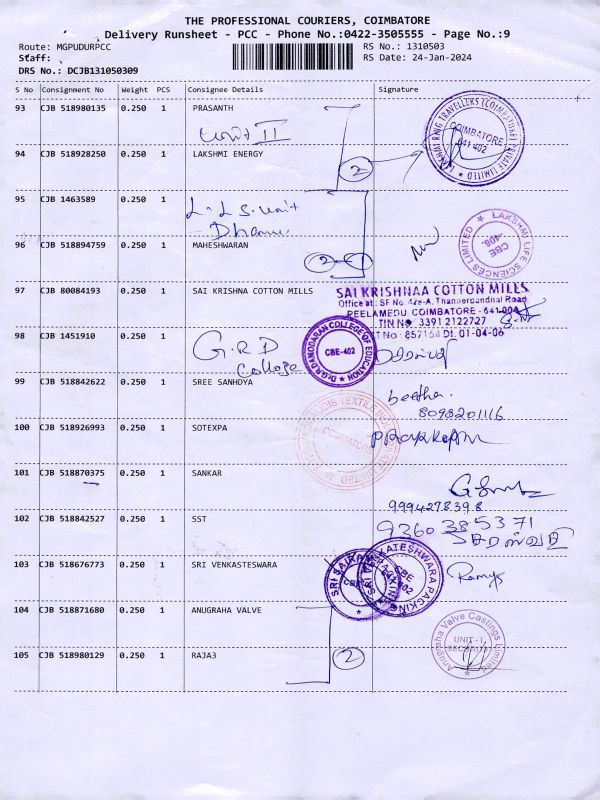 THE PROFESSIONAL COURIERS, COIMBATORE
Delivery Runsheet - PCC - Phone No.:0422-3505555 - Page No.:9
Route: MGPUDURPCC RS No.: 1310503
Staff: RS Date: 24-Jan-2024
DRS No.: DCJB131050309
S No Consignment No Weight PCS Consignee Details Signature
93 CJB 518980135 0.250 1 PRASANTH
Unit II
94 CJB 518928250 0.250 1 LAKSHMI ENERGY
2
COIMBATORE
641 402
95 CJB 1463589 0.250 1
L.L.S. Unit
96 CJB 518894759 0.250 1 MAHESHWARAN
2
LAKSHMI LIFE SCIENCES LIMITED
CBE
-406.
97 CJB 80084193 0.250 1 SAI KRISHNA COTTON MILLS
SAI KRISHNAA COTTON MILLS
Office at: SF No. 429-A, Thanneerpandhal Road
PEELAMEDU COIMBATORE - 641-004
TIN No 33912122727
98 CJB 1451910 0.250 1
G.R.D
College
Dr.G.R.DAMODARAN COLLEGE OF EDUCATION
CBE-402
99 CJB 518842622 0.250 1 SREE SANHDYA
beetha.
8098201116
100 CJB 518926993 0.250 1 SOTEXPA
COIMBATORE
101 CJB 518870375 0.250 1 SANKAR
9994278398
102 CJB 518842527 0.250 1 SST
9360385371
103 CJB 518676773 0.250 1 SRI VENKASTESWARA
CBE
Ramya
104 CJB 518871680 0.250 1 ANUGRAHA VALVE
Anugraha Valve Castings Limited
UNIT - I
SECURITY
105 CJB 518980129 0.250 1 RAJA3
2